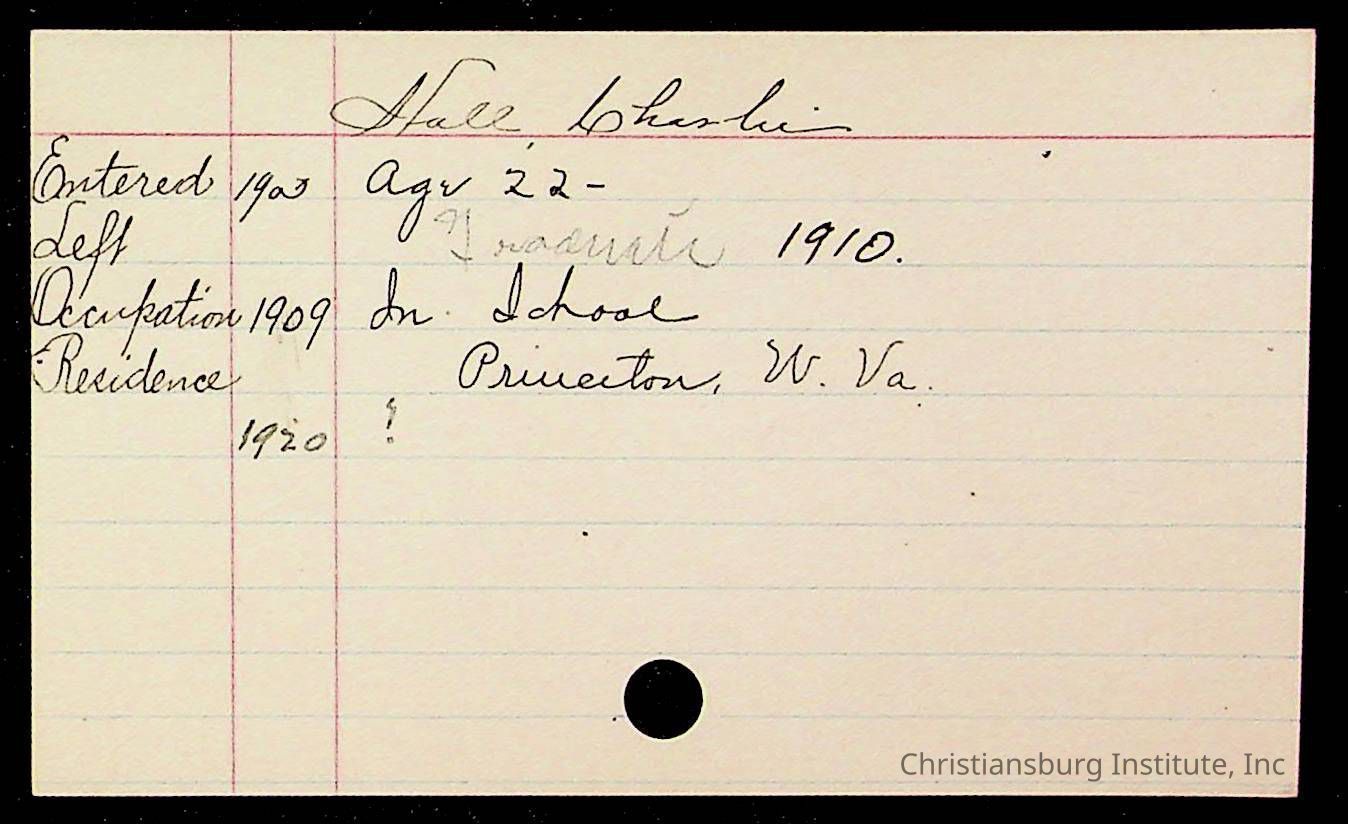 Hall Charlie
Entered 1903 Age 22-
Left Graduate 1910.
Occupation 1909 In School
Residence Princeton, W. Va.
1920 ?
Christiansburg Institute, Inc